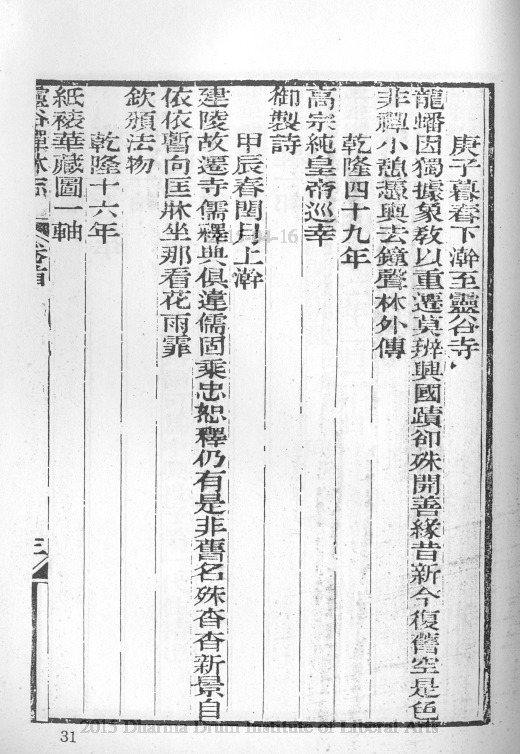 庚子暮春下澣至靈谷寺
龍蟠因獨據象教以重遷莫辨興國蹟卻殊開善緣昔新今復舊空是色
非禪小憩憑輿去鐘聲林外傳
乾隆四十九年
高宗純皇帝巡幸
御製詩
甲辰春閏月上澣
建陵故遷寺儒釋與俱違儒固乘忠恕釋仍有是非舊名殊杳杳新景自
依依暫向匡牀坐那看花雨霏
欽頒法物
乾隆十六年
紙裱華藏圖一軸
靈谷禪林志 卷首
三
31
2015 Dharma Drum Institute of Liberal Arts